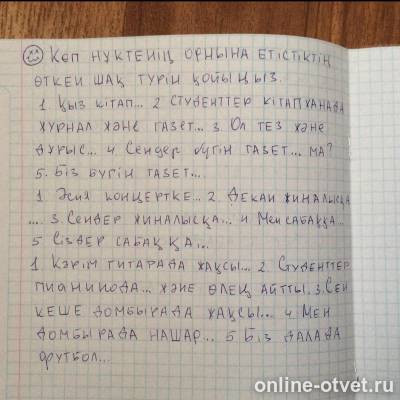 Көп нүктенің орнына етістіктің
өткен шақ түрін қойыңыз.
1 Қыз кітап... 2 Студенттер кітапханада
журнал және газет... 3. Ол тез және
дұрыс... 4. Сендер бүгін газет... ма?
5. Біз бүгін газет...
1. Әсия концертке... 2. Декан жиналысқа
... 3. Сендер жиналысқа... 4 Мен сабаққа...
5 Сіздер сабаққа...
1 Кәрім гитарада жақсы... 2. Студенттер
пианинода... және өлең айтты. 3. Сен
кеше домбырада жақсы... 4. Мен
домбырада нашар... 5. Біз далада
футбол...
online-otvet.ru